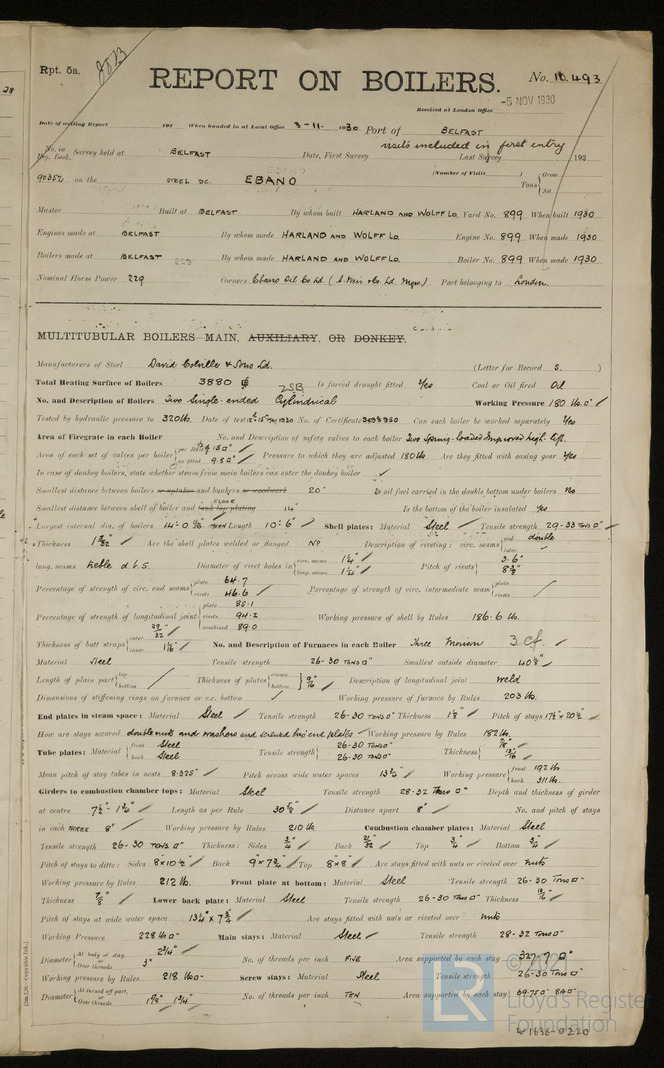 28
Rpt. 5a.
REPORT ON BOILERS.
No. 10,493
Received at London Office
-5 NOV 1930
Date of writing Report 192 When handed in at Local Office 3-11- 1930 Port of BELFAST
No. in Reg. Book. Survey held at BELFAST Date, First Survey visits included in first entry Last Survey 192
(Number of Visits )
90352 on the STEEL EBANO Tons { Gross Net
Master Built at BELFAST By whom built HARLAND AND WOLFF LD. Yard No. 899 When built 1930
Engines made at BELFAST By whom made HARLAND AND WOLFF LD. Engine No. 899 When made 1930
Boilers made at BELFAST By whom made HARLAND AND WOLFF LD. Boiler No. 899 When made 1930
Nominal Horse Power 229 Owners Ebano Oil Co Ld (A. Weir & Co. Ld. Mgrs.) Port belonging to London
MULTITUBULAR BOILERS MAIN, AUXILIARY, OR DONKEY.
Manufacturers of Steel David Colville & Sons Ld. (Letter for Record S. )
Total Heating Surface of Boilers 3880 Is forced draught fitted Yes Coal or Oil fired Oil
No. and Description of Boilers Two Single-ended Cylindrical 2SB Working Pressure 180 lbs
Tested by hydraulic pressure to 320 lb. Date of test No. of Certificate Can each boiler be worked separately Yes
Area of Firegrate in each Boiler No. and Description of safety valves to each boiler Two Spring-loaded Improved high lift
Area of each set of valves per boiler { per Rule 15 as fitted 9.8 Pressure to which they are adjusted 180 lb Are they fitted with easing gear Yes
In case of donkey boilers, state whether steam from main boilers can enter the donkey boiler ✓
Smallest distance between boilers or uptakes and bunkers or woodwork 20" Is oil fuel carried in the double bottom under boilers No
Smallest distance between shell of boiler and tank top plating FLOOR 14" Is the bottom of the boiler insulated Yes
Largest internal dia. of boilers Length 10'-6" Shell plates: Material Steel Tensile strength 29-33 TONS
Thickness Are the shell plates welded or flanged No Description of riveting: circ. seams { end double inter.
long. seams treble d.b.s. Diameter of rivet holes in { circ. seams 1¼" long. seams 1¼" Pitch of rivets { 3.6" 8⅜"
Percentage of strength of circ. end seams { plate 64.7 rivets 46.6 Percentage of strength of circ. intermediate seam { plate rivets
Percentage of strength of longitudinal joint { plate 85.1 rivets 94.2 combined 89.0 Working pressure of shell by Rules 186.6 lb.
Thickness of butt straps { outer 29/32 inner 1 1/16" No. and Description of Furnaces in each Boiler Three Morison 3 cf.
Material Steel Tensile strength 26-30 TONS Smallest outside diameter
Length of plain part { top bottom Thickness of plates { crown bottom 9/16" Description of longitudinal joint weld
Dimensions of stiffening rings on furnace or c.c. bottom Working pressure of furnace by Rules 203 lbs.
End plates in steam space: Material Steel Tensile strength 26-30 TONS Thickness 1⅛" Pitch of stays 17½" × 20½"
How are stays secured double nuts and washers and screwed into end plates Working pressure by Rules 182 lb.
Tube plates: Material { front Steel back Steel Tensile strength { 26-30 TONS 26-30 TONS Thickness { 7/8" 13/16"
Mean pitch of stay tubes in nests 8.325" Pitch across wide water spaces 13¾" Working pressure { front 192 lb back 311 lb.
Girders to combustion chamber tops: Material Steel Tensile strength 28-32 Tons Depth and thickness of girder
at centre 7½" - 1¾" Length as per Rule 30⅝" Distance apart 8" No. and pitch of stays
in each THREE 8" Working pressure by Rules 210 lb Combustion chamber plates: Material Steel
Tensile strength 26-30 TONS Thickness: Sides ¾" Back 21/32" Top ¾" Bottom ¾"
Pitch of stays to ditto: Sides 8"×10½" Back 9"×7¾" Top 8"×8" Are stays fitted with nuts or riveted over nuts
Working pressure by Rules 212 lb. Front plate at bottom: Material Steel Tensile strength 26-30 Tons
Thickness 7/8" Lower back plate: Material Steel Tensile strength 26-30 TONS Thickness 13/16"
Pitch of stays at wide water space 13¼" × 7¾" Are stays fitted with nuts or riveted over nuts
Working Pressure 228 lb Main stays: Material Steel Tensile strength 28-32 TONS
Diameter { At body of stay, 2¾" or Over threads 3" No. of threads per inch FIVE Area supported by each stay 327.7
Working pressure by Rules 218 lb Screw stays: Material Steel Tensile strength 26-30 Tons
Diameter { At turned off part, or Over threads 1⅝" 1¾" No. of threads per inch TEN Area supported by each stay 69.75 84
© 2021
LR
Lloyd's Register
Foundation
W1636-0220